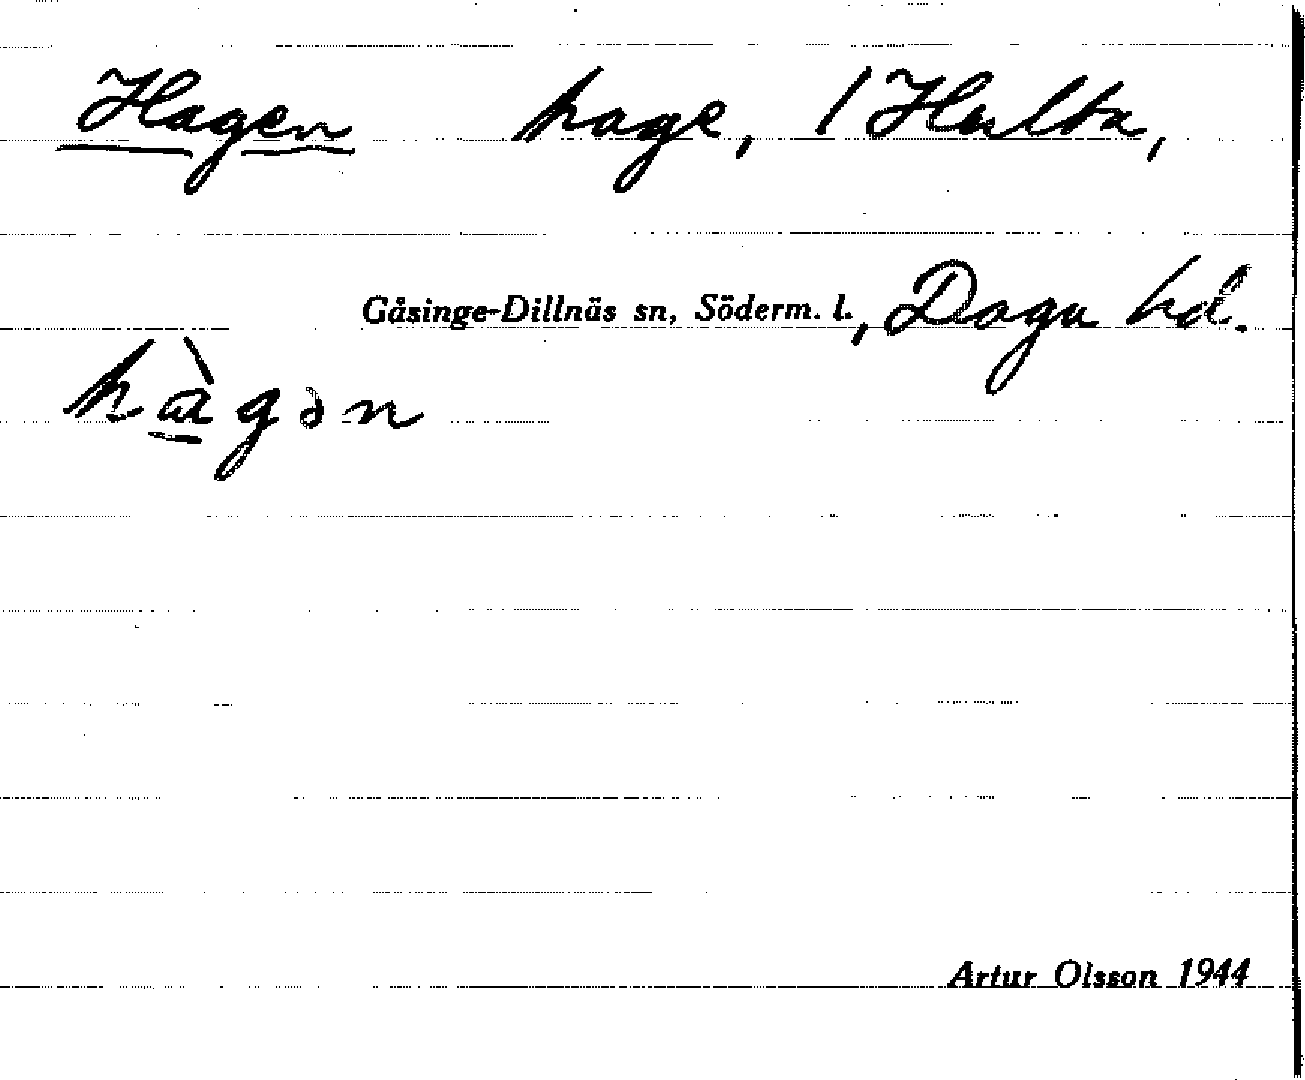 Hagen hage, / Hulta,
Gåsinge-Dillnäs sn, Söderm. l., Daga hd.
hàgən
Artur Olsson 1944